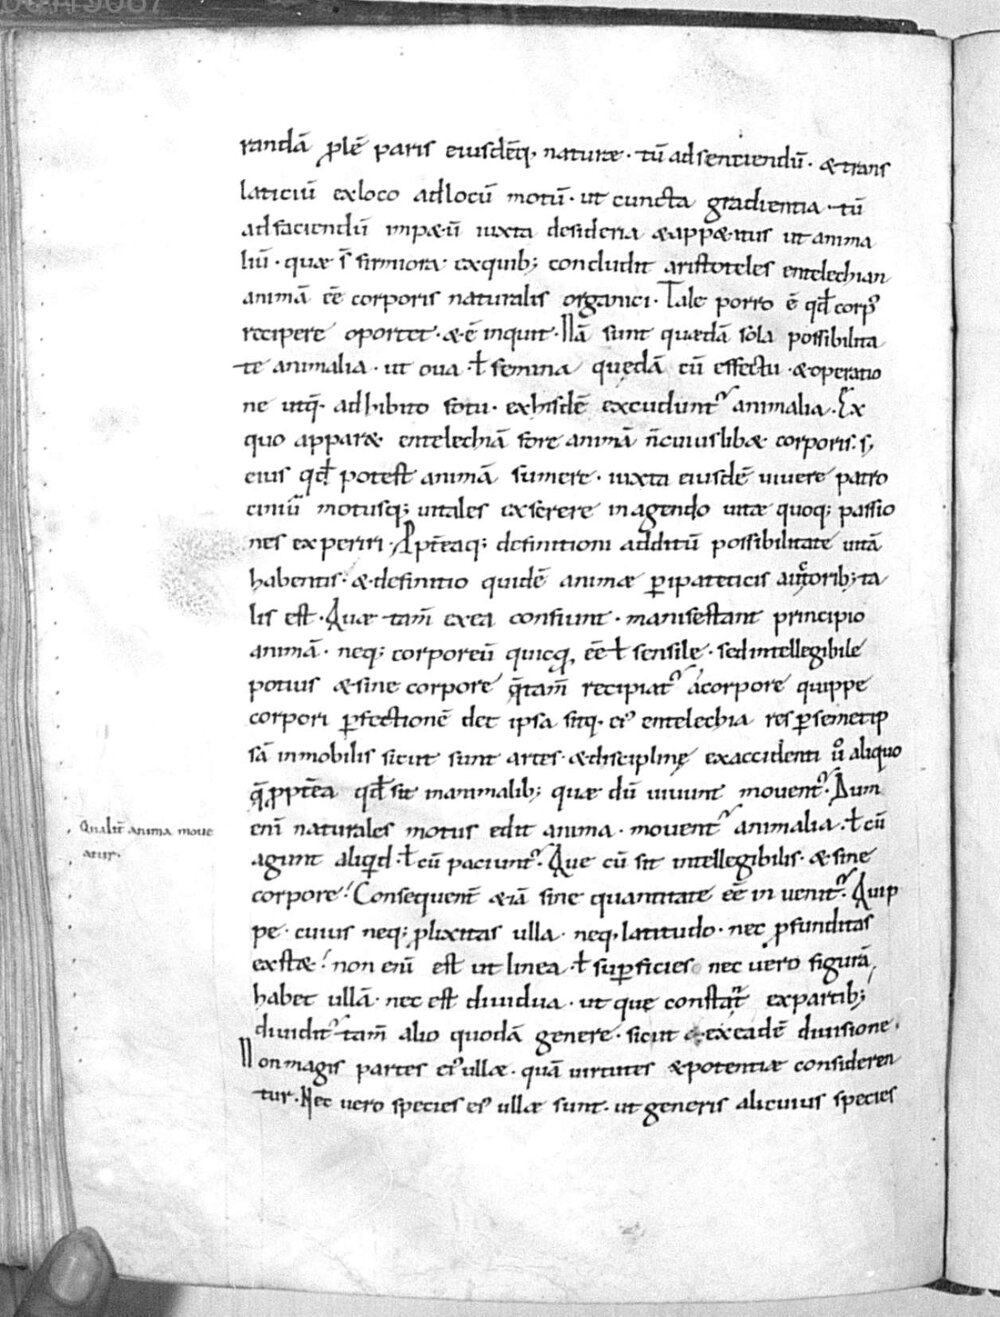 randā ꝓlē paris eiusdēq, naturæ · tū adsentiendū · & trans
laticiū ex loco ad locū motū · ut cuncta gradientia · tū
ad faciendū impetū iuxta desideria & appetitus ut anima
liū · quæ s̄ firmiora · ex quib; concludit aristoteles entelechian
animā eē corporis naturalis organici · Tale porro ē qd̄ corpꝰ
recipere oportet · & ē inquit · Nā sunt quædā sola possibilita
te animalia · ut oua ł semina quędā cū effectu · & operatio
ne utq̄ · adhibito fotu · ex hisdē excudunt᷒ animalia · Ex
quo apparet entelechiā fore animā n̄ cuiuslibet corporis · s;
eius qd̄ potest animā sumere · iuxta eiusdē uiuere patro
ciniū motusq; uitales exserere in agendo uitæ quoq; passio
nes experiri · Apt̄eaq; definitioni additū possibilitate uitā
habentis · & definitio quidē animæ ꝑipateticis auctorib; ta
lis est · Quæ tam̄ ex ea confiunt · manifestant principio
animā · neq; corporeū quicq, eē ł sensile · sed intellegibile
potius & sine corpore q̄tam̄ recipiat᷒ a corpore quippe
corpori ꝑfectionē det ipsa sitq · eiꝰ entelechia res ꝑ semetip
sā inmobilis sicut sunt artes · & disciplinę ex accidenti ů aliquo
q̄ ꝓpt̄ea qd̄ sit in animalib; quæ dū uiuunt mouent᷒ · Dum
eni naturales motus edit anima · mouent᷒ animalia · ł cū
agunt aliqd · ł cū paciunt᷒ · Que cū sit intellegibilis · & sine
corpore · Consequent̄ & iā sine quantitate eē inuenit᷒ · Quip
pe · cuius neq; ꝓlixitas ulla · neq, latitudo · nec ꝓfunditas
exstet · non eni est ut linea · ł suꝑficies nec uero figurā
habet ullā · nec est diuidua · ut quę constat᷒ ex partib;
Qualit̄ anima moue
atur ·
diuidit᷒ tam̄ alio quodā genere · sicut & ex eadē diuisione ·
Non magis partes eiꝰ ullæ · quā uirtutes & potentiæ consideren
tur · Nec uero species eiꝰ ullæ sunt · ut generis alicuius species